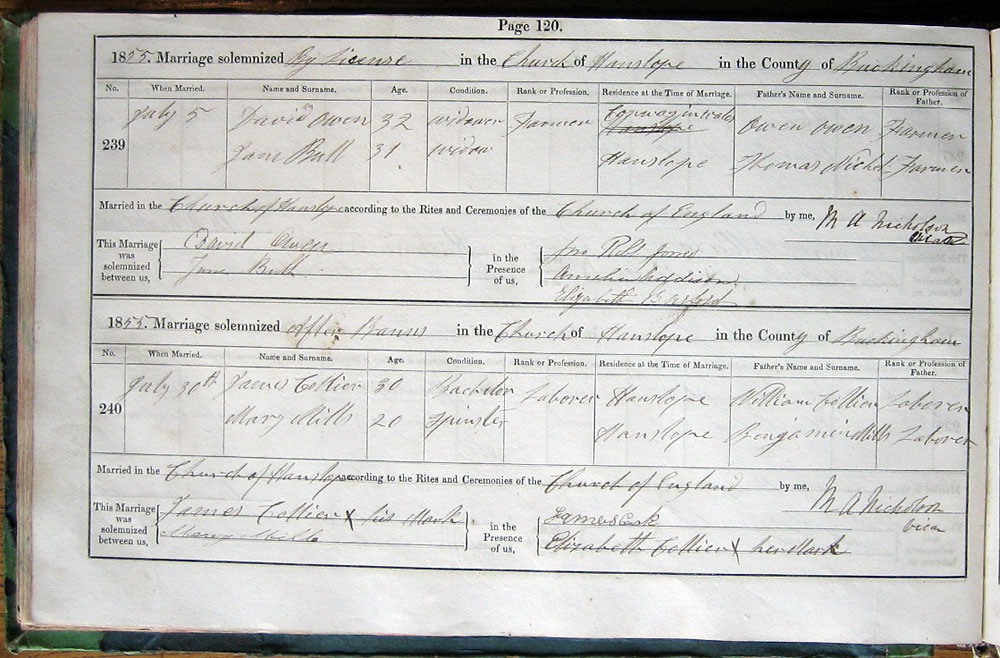 Page 120.
1855. Marriage solemnized By License in the Church of Hanslope in the County of Buckingham
No. When Married. Name and Surname. Age. Condition. Rank or Profession. Residence at the Time of Marriage. Father's Name and Surname. Rank or Profession of Father.
239 July 5 David Owen 32 widower Farmer Hanslope Owen Owen Farmer
Jane Bull 31 widow Hanslope Thomas Farmer
Married in the Church of Hanslope according to the Rites and Ceremonies of the Church of England by me, M A Nicholson
Vicar
This Marriage was solemnized between us, David Owen in the Presence of us, Jno Robt Jones
Jane Bull Amelia Addison
Elizabeth
1855. Marriage solemnized after Banns in the Church of Hanslope in the County of Buckingham
No. When Married. Name and Surname. Age. Condition. Rank or Profession. Residence at the Time of Marriage. Father's Name and Surname. Rank or Profession of Father.
240 July 30th James Collier 30 Bachelor Laborer Hanslope William Collier Laborer
Mary Mills 20 Spinster Hanslope Bengamin Mills Laborer
Married in the Church of Hanslope according to the Rites and Ceremonies of the Church of England by me, M A Nicholson
Vicar
This Marriage was solemnized between us, James Collier X his Mark in the Presence of us, James Cook
Mary Mills Elizabeth Collier X her Mark